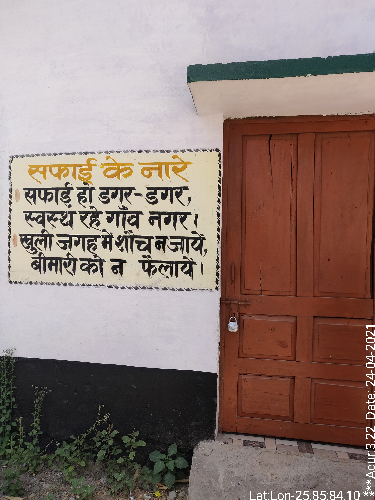 सफाई के नारे
सफाई हो डगर-डगर,
स्वस्थ रहे गाँव नगर।
खुली जगह में शौच न जायें,
बीमारी को न फैलायें।
Lat:Lon-25.85:84.10**
***Acur:3.22 Date: 24-04-2021